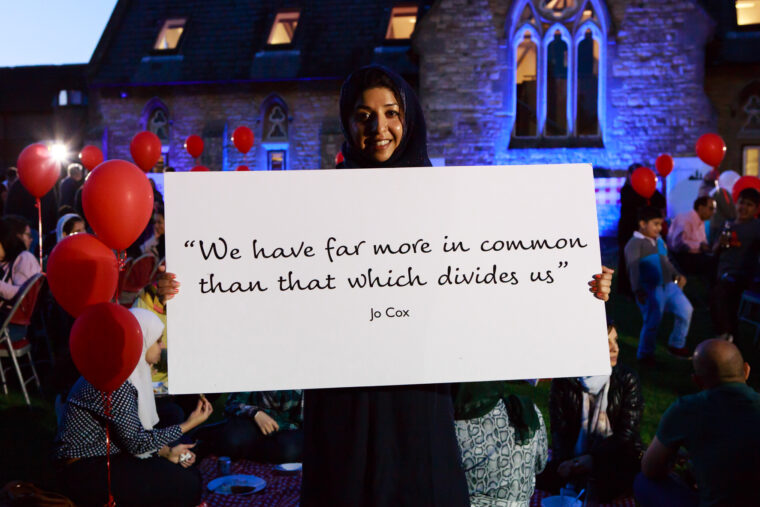 “We have far more in common
than that which divides us”
Jo Cox